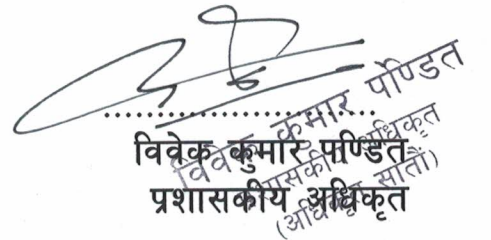 ..............................
विवेक कुमार पण्डित
प्रशासकीय अधिकृत
विवेक कुमार पण्डित
प्रशासकीय अधिकृत
(अधिकृत सातौं)